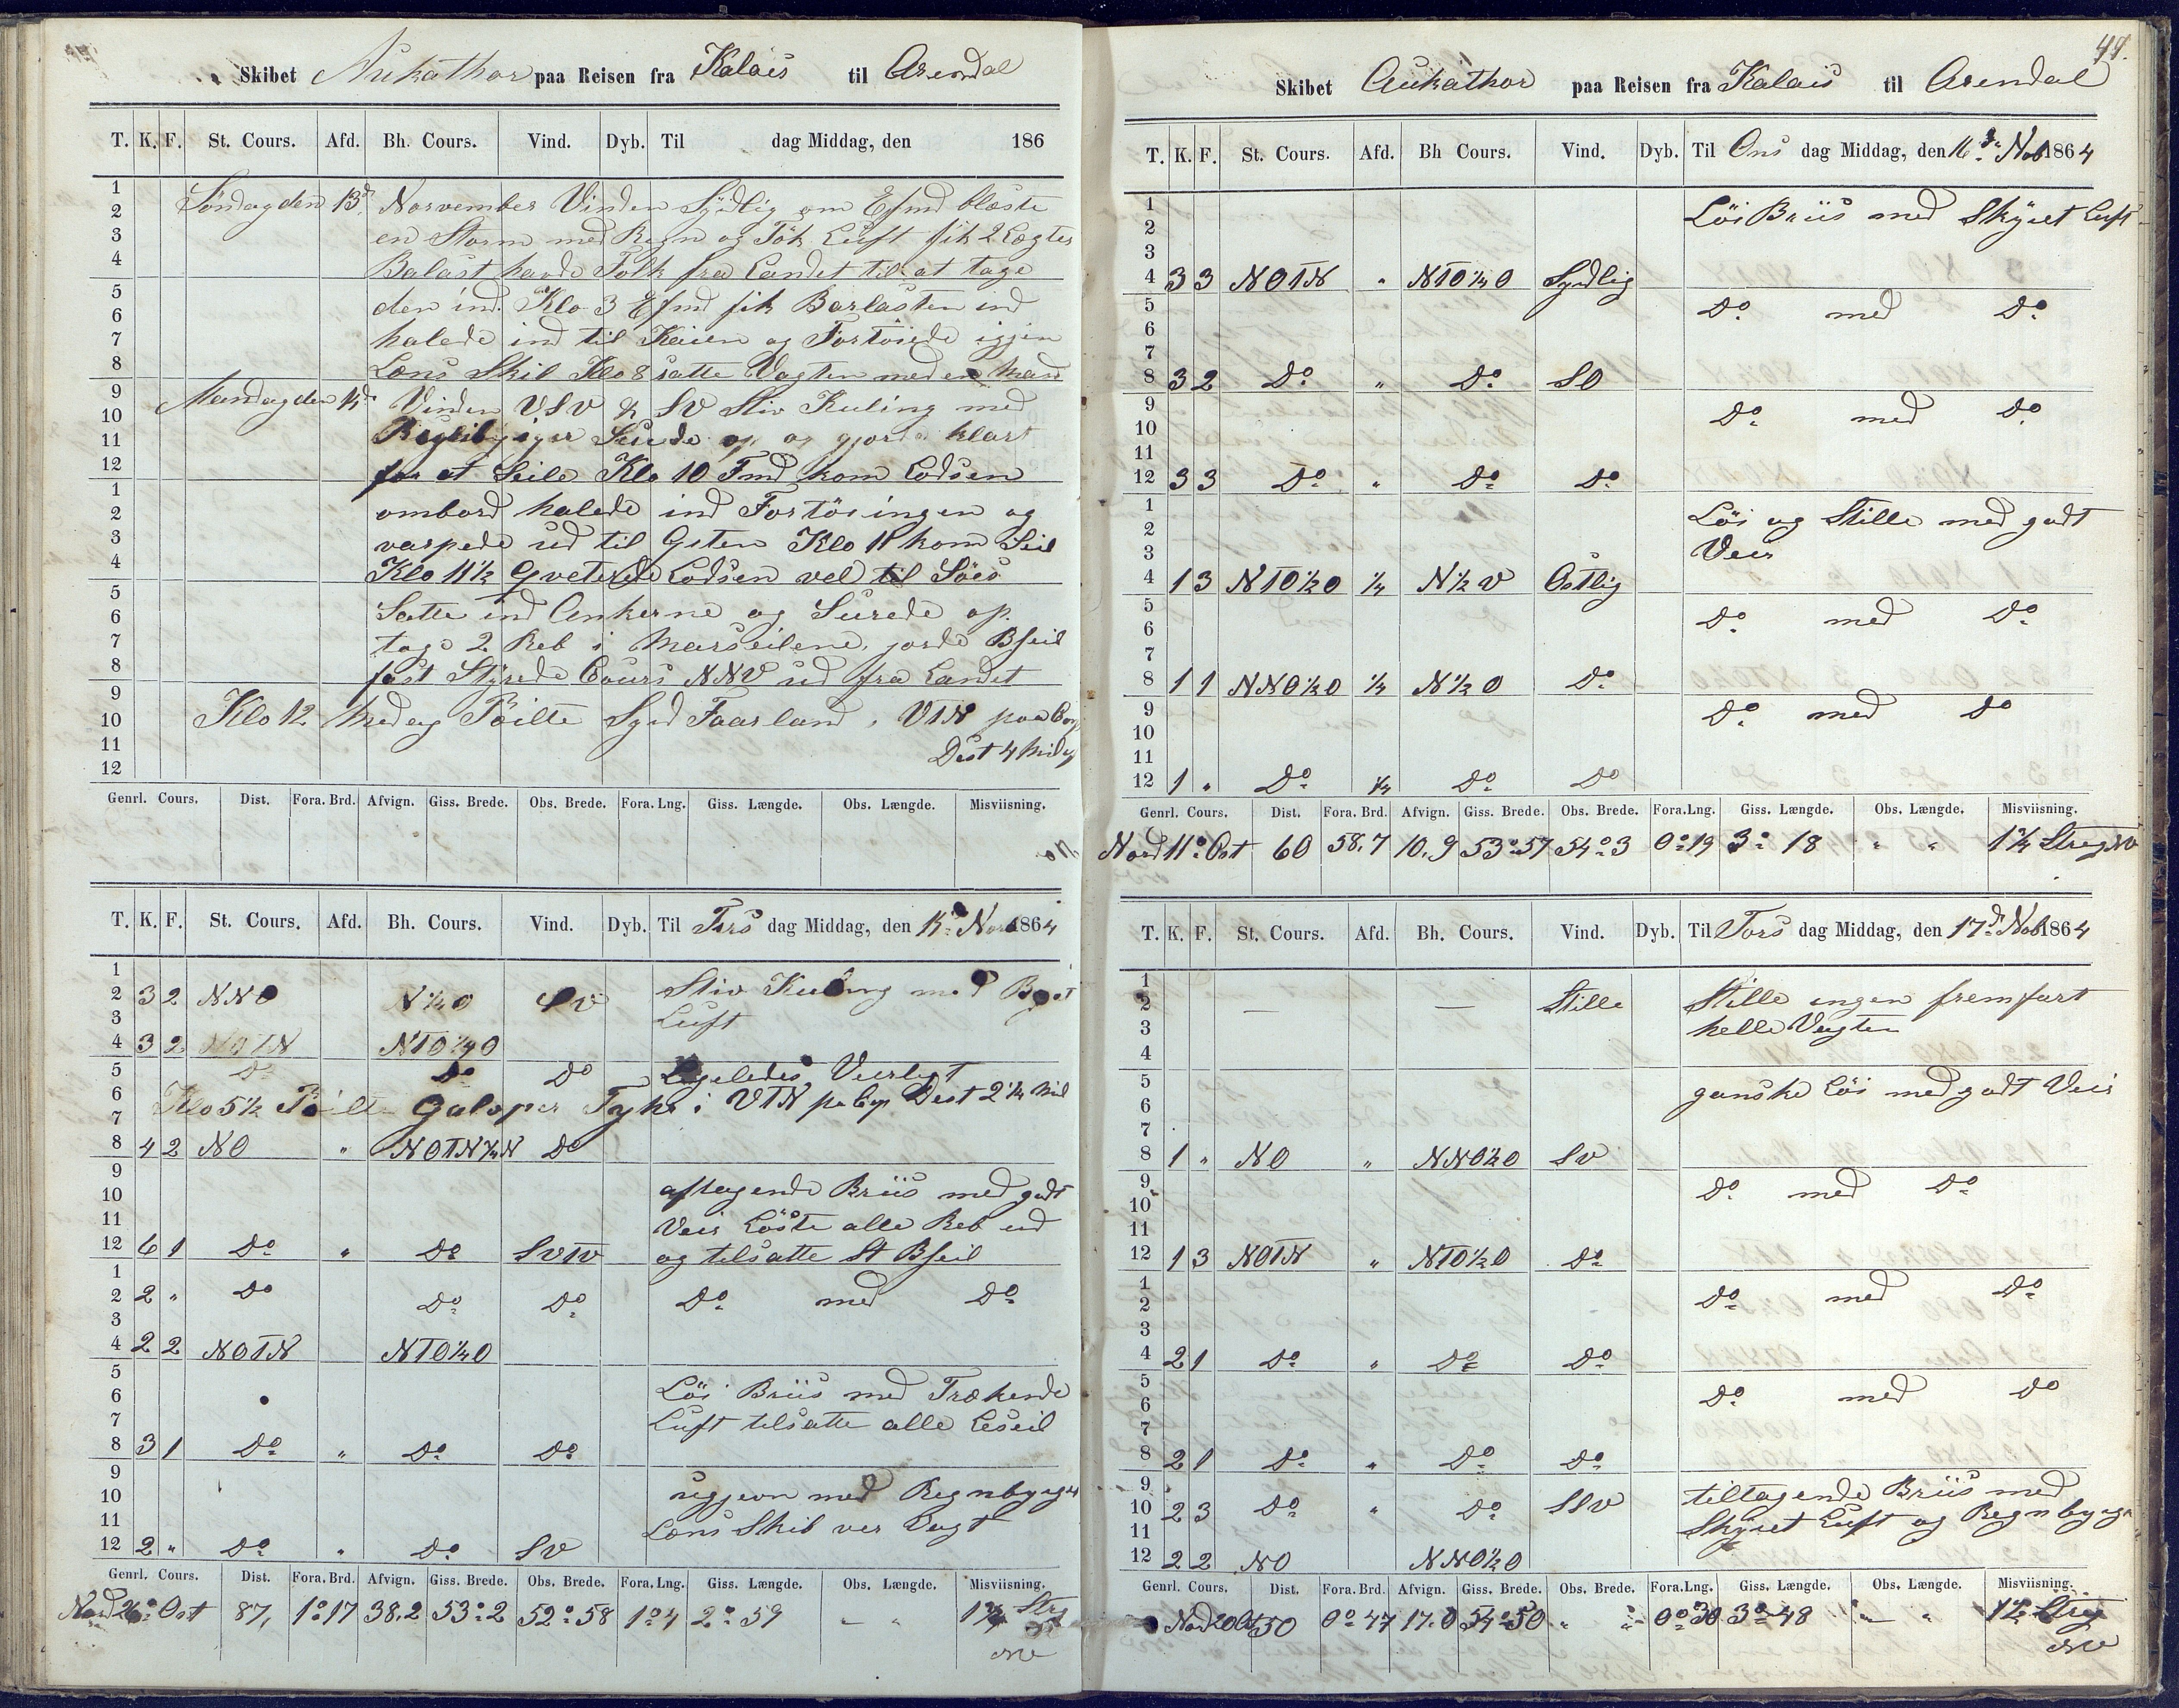 Skibet Aukathor paa Reisen fra Kalais til Arendal
T. K. F. St. Cours. Afd. Bh. Cours. Vind. Dyb. Til dag Middag, den 186
1
2 Søndag den 13d November Vinden Sydlig om Efmd blæste
3 en Storm med Regn og Tök Luft fik 2 Lægter
4 Balast havde Folk fra Landet til at tage
5 den ind. Klo 3 Efmd fik Barlasten ind
6
7 halede ind til Keien og Fortöiede igjen
8 Læns Skib Klo 8 satte Vagten med en Mand
9 Mandag den 14d Vinden VSV & SV Stiv Kuling med
10
11 Surede op og gjorde klart
12 for at Seile Klo 10 Fmd kom Lodsen
1 ombord halede ind Fortöiingen og
2
3 varpede ud til Klo 11 kom Seil
4 Klo 11½ Lodsen vel til Söes
5 Satte ind Ankerne og Surede op.
6
7 toge 2 Reb i Marseilene, jorde Bseil
8 fast Styrede Cours NNV ud fra Landet
9
10 Klo 12 Medag Peilte Syd Faarland i VTN paa Comp
11 Dest 4 Mil
12
Genrl. Cours. Dist. Fora. Brd. Afvign. Giss. Brede. Obs. Brede. Fora. Lng. Giss. Længde. Obs. Længde. Misviisning.
T. K. F. St. Cours. Afd. Bh. Cours. Vind. Dyb. Til Tirs dag Middag, den 15d Nov 1864
1
2 3 2 NNO N¼O SV Stiv Kuling med
3 Luft
4 3 2 NOTN NTO¼O
5 Do Do Do Ligeledes Veerligt
6 Klo 5½ Peilte Galoper Fyhr i VTN pr Cop Dest 2¼ Mil
7
8 4 2 NO " NOTN¼N Do
9
10 aftagende Briis med godt
11 Veir Löste alle Reb ud
12 6 1 Do " Do SVTV og tilsatte St Bseil
1
2 2 " Do Do Do Do med Do
3
4 2 2 NOTN NTO¼O
5
6 Löi Briis med Trækende
7 Luft tilsatte alle Leseil
8 3 1 Do " Do Do
9
10 ugjevn med Regnbyger
11 Læns Skib ver Vagt
12 2 " Do " Do SV
Genrl. Cours. Dist. Fora. Brd. Afvign. Giss. Brede. Obs. Brede. Fora. Lng. Giss. Længde. Obs. Længde. Misviisning.
Nord 26° Ost 87, 1°17 38,2 53°2 52°58 1°4 2°59 - " 1¾ Streg
NV
44.
Skibet Aukathor paa Reisen fra Kalais til Arendal
T. K. F. St. Cours. Afd. Bh Cours. Vind. Dyb. Til Ons dag Middag, den 16de Nob 1864
1 Löi Briis med Skyet Luft
2
3
4 3 3 NOTN " NTO¼O Sydlig
5 Do med Do
6
7
8 3 2 Do " Do SO
9 Do med Do
10
11
12 3 3 Do " Do Do
1 Löi og Stille med godt
2 Veir
3
4 1 3 NTO½O ¼ N½V Ostlig
5 Do med Do
6
7
8 1 1 NNO½O ¼ N½O Do
9 Do med Do
10
11
12 1 " Do ¼ Do Do
Genrl. Cours. Dist. Fora. Brd. Afvign. Giss. Brede. Obs. Brede. Fora.Lng. Giss. Længde. Obs. Længde. Misviisning.
Nord 11° Ost 60 58,7 10,9 53°57 54°3 0°19 3°18 " " 1¾ Streg NV
T. K. F. St. Cours. Afd. Bh. Cours. Vind. Dyb. Til Tors dag Middag, den 17d Nob 1864
1
2 — — Stille Stille ingen fremfart
3 helle Vagten
4
5 ganske Löi med godt Veir
6
7
8 1 " NO " NNO½O SV
9 Do med Do
10
11
12 1 3 NOTN " NTO½O Do
1 Do med Do
2
3
4 2 1 Do " Do Do
5 Do med Do
6
7
8 2 1 Do " Do Do
9 tiltagende Briis med
10 2 3 Do " Do SSV
11 Skyet Luft og Regn byger
12 2 2 NO NNO½O
Genrl. Cours. Dist. Fora. Brd. Afvign. Giss. Brede. Obs. Brede. Fora.Lng. Giss. Længde. Obs. Længde. Misviisning.
Nord 20 Ost 50 0°47 17.0 54°50 " " 0°30 3°48 " " 1¾ Streg
NV